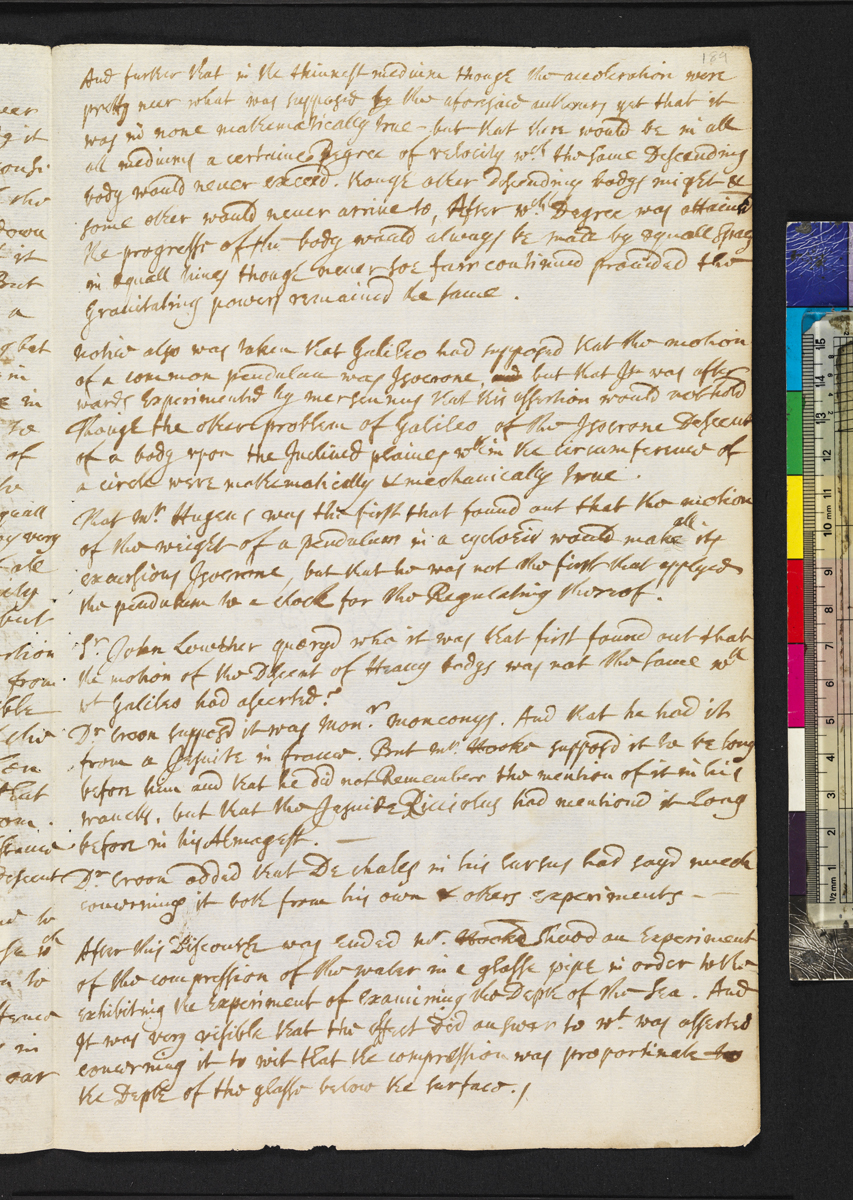 189
And further that in the thinnest medium though the acceleration were
pretty neer what was supposed by the aforesaid authours yet that it
was in none mathematically true - but that there would be in all
all mediums a certaine Degree of velocity wch the same Descending
body would never exceed. though other Descending bodys might &
some other would never arrive to, After wch Degree was attaind
the progresse of the body would always be made by equall spaces
in equall times though never soe farr continued provided the
Gravitating power remained the same.
notice also was taken that Galileo had supposed that the motion
of a common pendulum was Isocrone, but that It was after
wards Experimented by mersennus that this assertion would not hold
Though the other problem of Galileo of the Isocrone Descent
of a body upon the Inclined plaines wthin the circumference of
a circle were mathematically & mechanically true.
that Mr Hugens was the first that found out that the motion
of the weight of a pendulum in a cycloeid would make all its
excursions Isocrone, but that he was not the first that applyed
the pendulum to a clock for the Regulating thereof.
Sr. John Lowther queryd who it was that first found out that
the motion of the Descent of Heavy bodys was not the same wch
wt Galileo had aserted?
Dr Croon supposd it was Monr. monconys. And that he had it
from a Jesuite in france. But mr. Hooke supposd it to be long
before him and that he did not Remember the mention of it in his
travels. but that the Jesuite Ricciolus had mentiond it Long
before in his Almagest. —
Dr. Croon added that De chales in his Cursus had sayd much
concerning it both from his own & others Experiments —
After this Discourse was ended mr. Hooke shewd an Experiment
of the compression of the water in a glasse pipe in order to the
exhibiting the Experiment of examining the Depth of the Sea. And
It was very visible that the effect did answer to wt was asserted
concerning it to wit that the compression was proportinate to
the Depth of the glasse below the surface.
neer
it
the
down
it
But
a
in
in
to
of
equall
very
but
from
the
that
descent
to
to
in
our
15
14
13
12
11
10 mm
9
8
7
6
5
4
3
2
1/2 mm 1